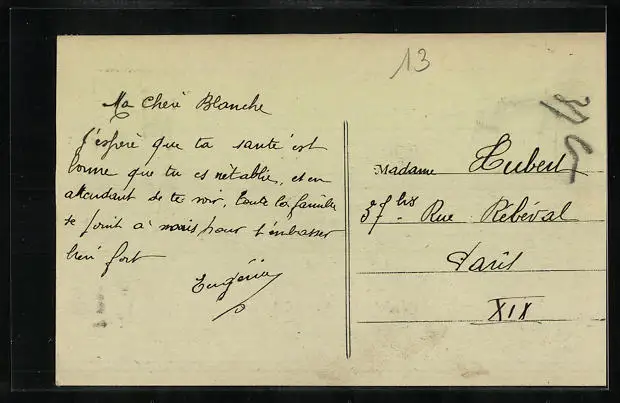 13
Ma Cheré Blanche
J'espère que ta santé est
bonne que tu es rétablie, et en
attendant de te voir, toute la famille
se joint à nous pour t'embrasser
bien fort
Eugénie
Madame Hubert
37 bis Rue Rébéval
Paris
XIX